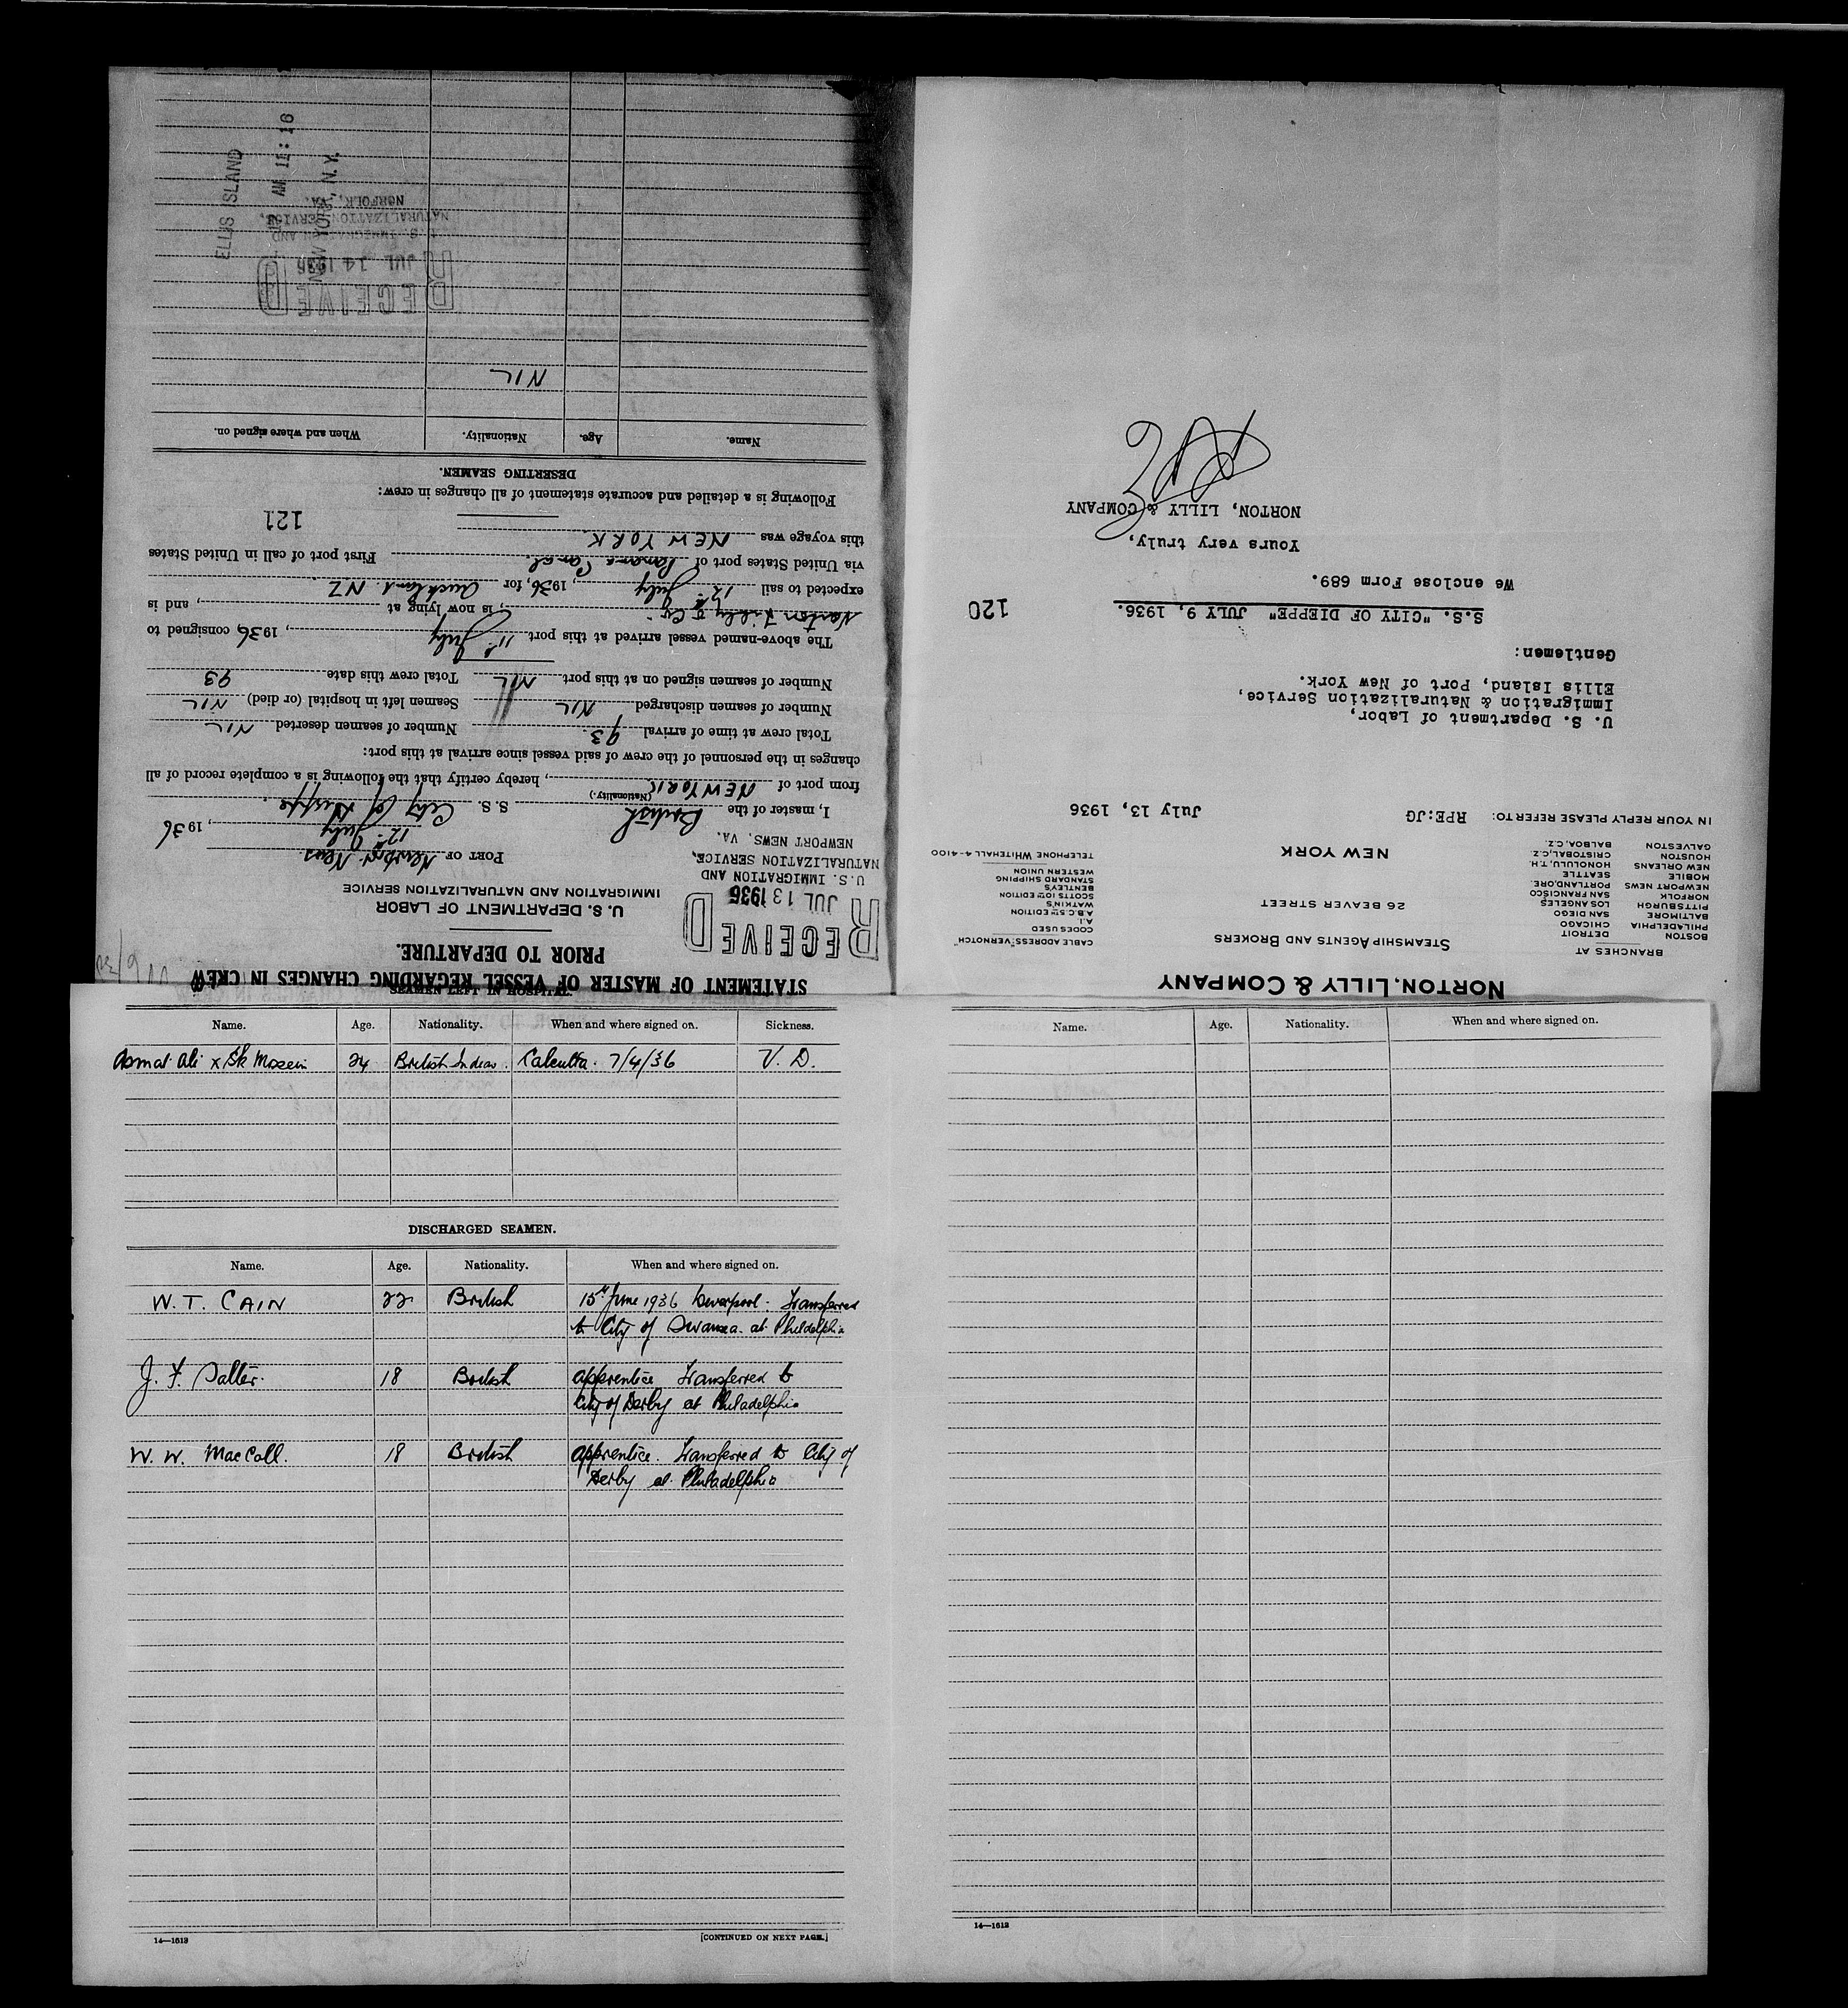 NORTON, LILLY & COMPANY
STEAMSHIP AGENTS AND BROKERS
26 BEAVER STREET
NEW YORK
BRANCHES AT
BOSTON DETROIT
PHILADELPHIA CHICAGO
BALTIMORE SAN DIEGO
PITTSBURGH LOS ANGELES
NORFOLK SAN FRANCISCO
NEWPORT NEWS PORTLAND, ORE.
MOBILE SEATTLE
NEW ORLEANS HONOLULU, T.H.
HOUSTON CRISTOBAL, C.Z.
GALVESTON BALBOA, C.Z.
CABLE ADDRESS "VERNOTCH"
CODES USED
A.I.
A.B.C. 5TH EDITION
WATKIN'S
SCOTTS 10TH EDITION
BENTLEY'S
STANDARD SHIPPING
WESTERN UNION
TELEPHONE WHITEHALL 4-4100
IN YOUR REPLY PLEASE REFER TO: RPE:JG
July 13, 1936
U. S. Department of Labor,
Immigration & Naturalization Service,
Ellis Island, Port of New York.
Gentlemen:
S.S. "CITY OF DIEPPE" JULY 9, 1936.
120
We enclose Form 689.
Yours very truly,
NORTON, LILLY & COMPANY
STATEMENT OF MASTER OF VESSEL REGARDING CHANGES IN CREW
PRIOR TO DEPARTURE.
RECEIVED
JUL 13 1936
U.S. IMMIGRATION AND
NATURALIZATION SERVICE,
NEWPORT NEWS, VA.
U. S. DEPARTMENT OF LABOR
IMMIGRATION AND NATURALIZATION SERVICE
PORT OF Newport News.
12th July, 1936
I, master of the British S. S. City of Dieppe.
(Nationality.)
from port of NEW YORK, hereby certify that the following is a complete record of all
changes in the personnel of the crew of said vessel since arrival at this port:
Total crew at time of arrival 93. Number of seamen deserted NIL
Number of seamen discharged NIL Seamen left in hospital (or died) NIL
Number of seamen signed on at this port NIL Total crew this date 93
The above-named vessel arrived at this port 11th July, 1936, consigned to
Norton Lilly & Co., is now lying at , and is
expected to sail 12th July, 1936, for Auckland N Z.
via United States port of Panama Canal. First port of call in United States
this voyage was NEW YORK.
121
Following is a detailed and accurate statement of all changes in crew:
DESERTING SEAMEN.
Name. Age. Nationality. When and where signed on.
NIL
RECEIVED
JUL 14 1936
U. S. IMMIGRATION AND
NATURALIZATION SERVICE,
NORFOLK, VA.
ELLIS ISLAND
AM 11:16
NEW YORK, N.Y.
SEAMEN LEFT IN HOSPITAL.
Name. Age. Nationality. When and where signed on. Sickness.
Asmat Ali x Sk Mozein 24 British Indian. Calcutta. 7/4/36 V. D.
DISCHARGED SEAMEN.
Name. Age. Nationality. When and where signed on.
W. T. CAIN 22 British 15th June 1936 Liverpool. Transferred
to City of Swansea. at Phildelphia
J. F. Salter. 18 British apprentice Transferred to
City of Derby at Philadelphia
W. W. MacColl. 18 British apprentice. Transferred to City of
Derby at Philadelphia
14—1613
[CONTINUED ON NEXT PAGE.]
Name. Age. Nationality. When and where signed on.
14—1613